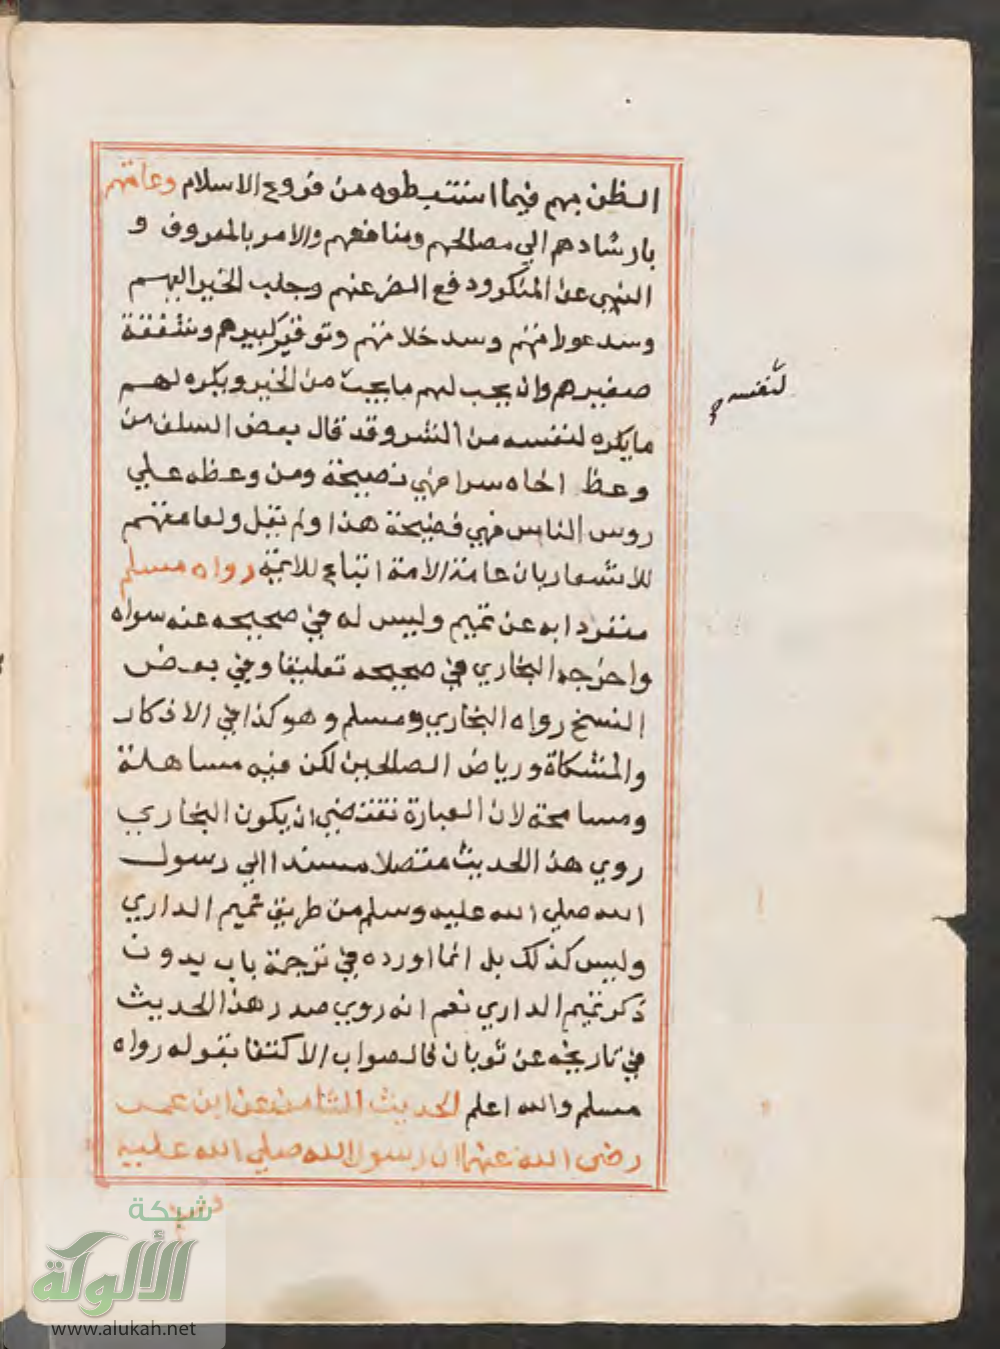 الظن بهم فيما استنبطوه من فروع الاسلام وعامتهم
بارشادهم الي مصالحهم ومنافعهم والامر بالمعروف و
النهي عن المنكر ودفع الضر عنهم وجلب الخير اليهم
وسد عوراتهم وسد خلاتهم وتوقير كبيرهم وشفقة
صغيرهم وان يحب لهم ما يحب من الخير ويكره لهم
لنفسه صح
ما يكره لنفسه من الشر وقد قال بعض السلف من
وعظ اخاه سرا فهي نصيحة ومن وعظه علي
روس الناس فهي فضيحة هذا ولم يقل ولعامتهم
للاشعار بان عامة الامة اتباع للائمة رواه مسلم
منفردا به عن تميم وليس له في صحيحه عنه سواه
واخرجه البخاري في صحيحه تعليقا وفي بعض
النسخ رواه البخاري ومسلم وهو كذا في الاذكار
والمشكاة ورياض الصالحين لكن فيه مساهلة
ومسامحة لان العبارة تقتضي ان يكون البخاري
روي هذا الحديث متصلا مسندا الي رسول
الله صلي الله عليه وسلم من طريق تميم الداري
وليس كذلك بل انما اورده في ترجمة باب بدون
ذكر تميم الداري نعم انه روي صدر هذا الحديث
في تاريخه عن ثوبان فالصواب الاكتفا بقوله رواه
مسلم والله اعلم الحديث الثامن عن ابن عمر
رضى الله عنهما ان رسول الله صلي الله عليه
وسلم
شبكة
الألوكة
www.alukah.net